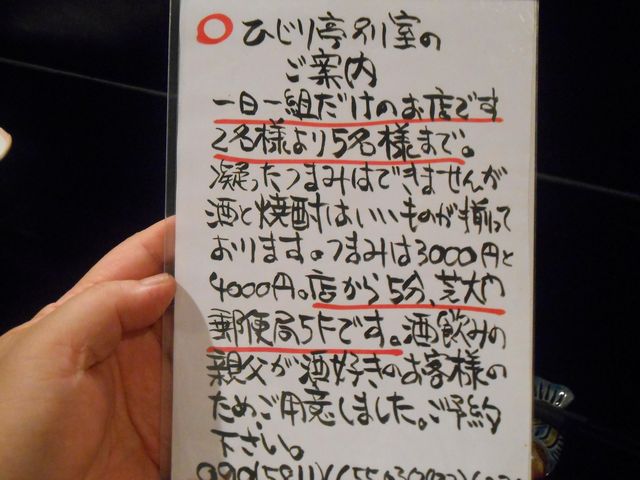 ○ひじり亭別室の
ご案内
一日一組だけのお店です
2名様より5名様まで。
凝ったつまみはできませんが
酒と焼酎はいいものが揃って
おります。つまみは3000円と
4000円。店から5分、芝大門
郵便局5Fです。酒飲みの
親父が酒好きのお客様の
ため、ご用意しました。ご予約
下さい。